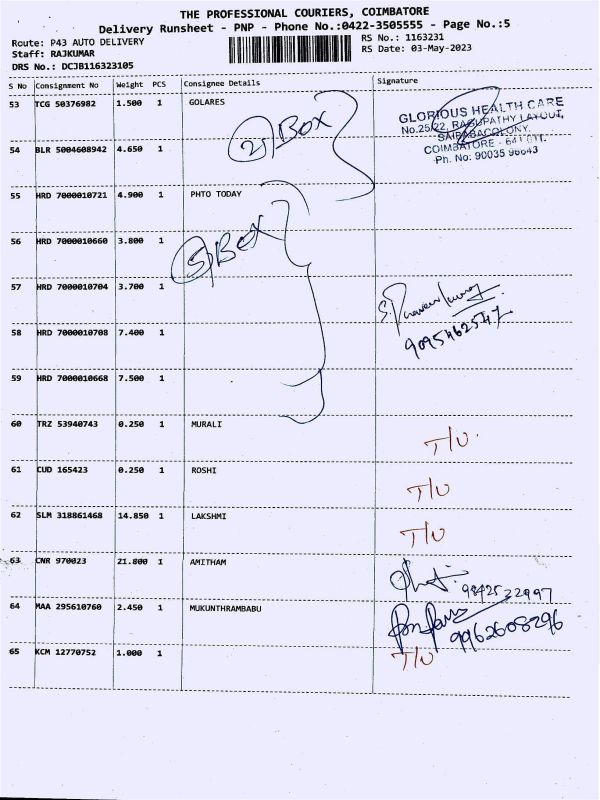 THE PROFESSIONAL COURIERS, COIMBATORE
Delivery Runsheet - PNP - Phone No.:0422-3505555 - Page No.:5
Route: P43 AUTO DELIVERY RS No.: 1163231
Staff: RAJKUMAR RS Date: 03-May-2023
DRS No.: DCJB116323105
S No Consignment No Weight PCS Consignee Details Signature
53 TCG 50376982 1.500 1 GOLARES
2) Box
GLORIOUS HEALTH CARE
No.25/22, RAGUPATHY LAYOUT,
SAIBABACOLONY,
COIMBATORE - 641 011.
Ph. No: 90035 96643
54 BLR 5004608942 4.650 1
55 HRD 7000010721 4.900 1 PHTO TODAY
5) Box
56 HRD 7000010660 3.800 1
57 HRD 7000010704 3.700 1
9095462547
58 HRD 7000010708 7.400 1
59 HRD 7000010668 7.500 1
60 TRZ 53940743 0.250 1 MURALI T/U
61 CUD 165423 0.250 1 ROSHI T/U
62 SLM 318861468 14.850 1 LAKSHMI T/U
63 CNR 970023 21.800 1 AMITHAM 9842532997
64 MAA 295610760 2.450 1 MUKUNTHRAMBABU 9962608296
65 KCM 12770752 1.000 1 T/U